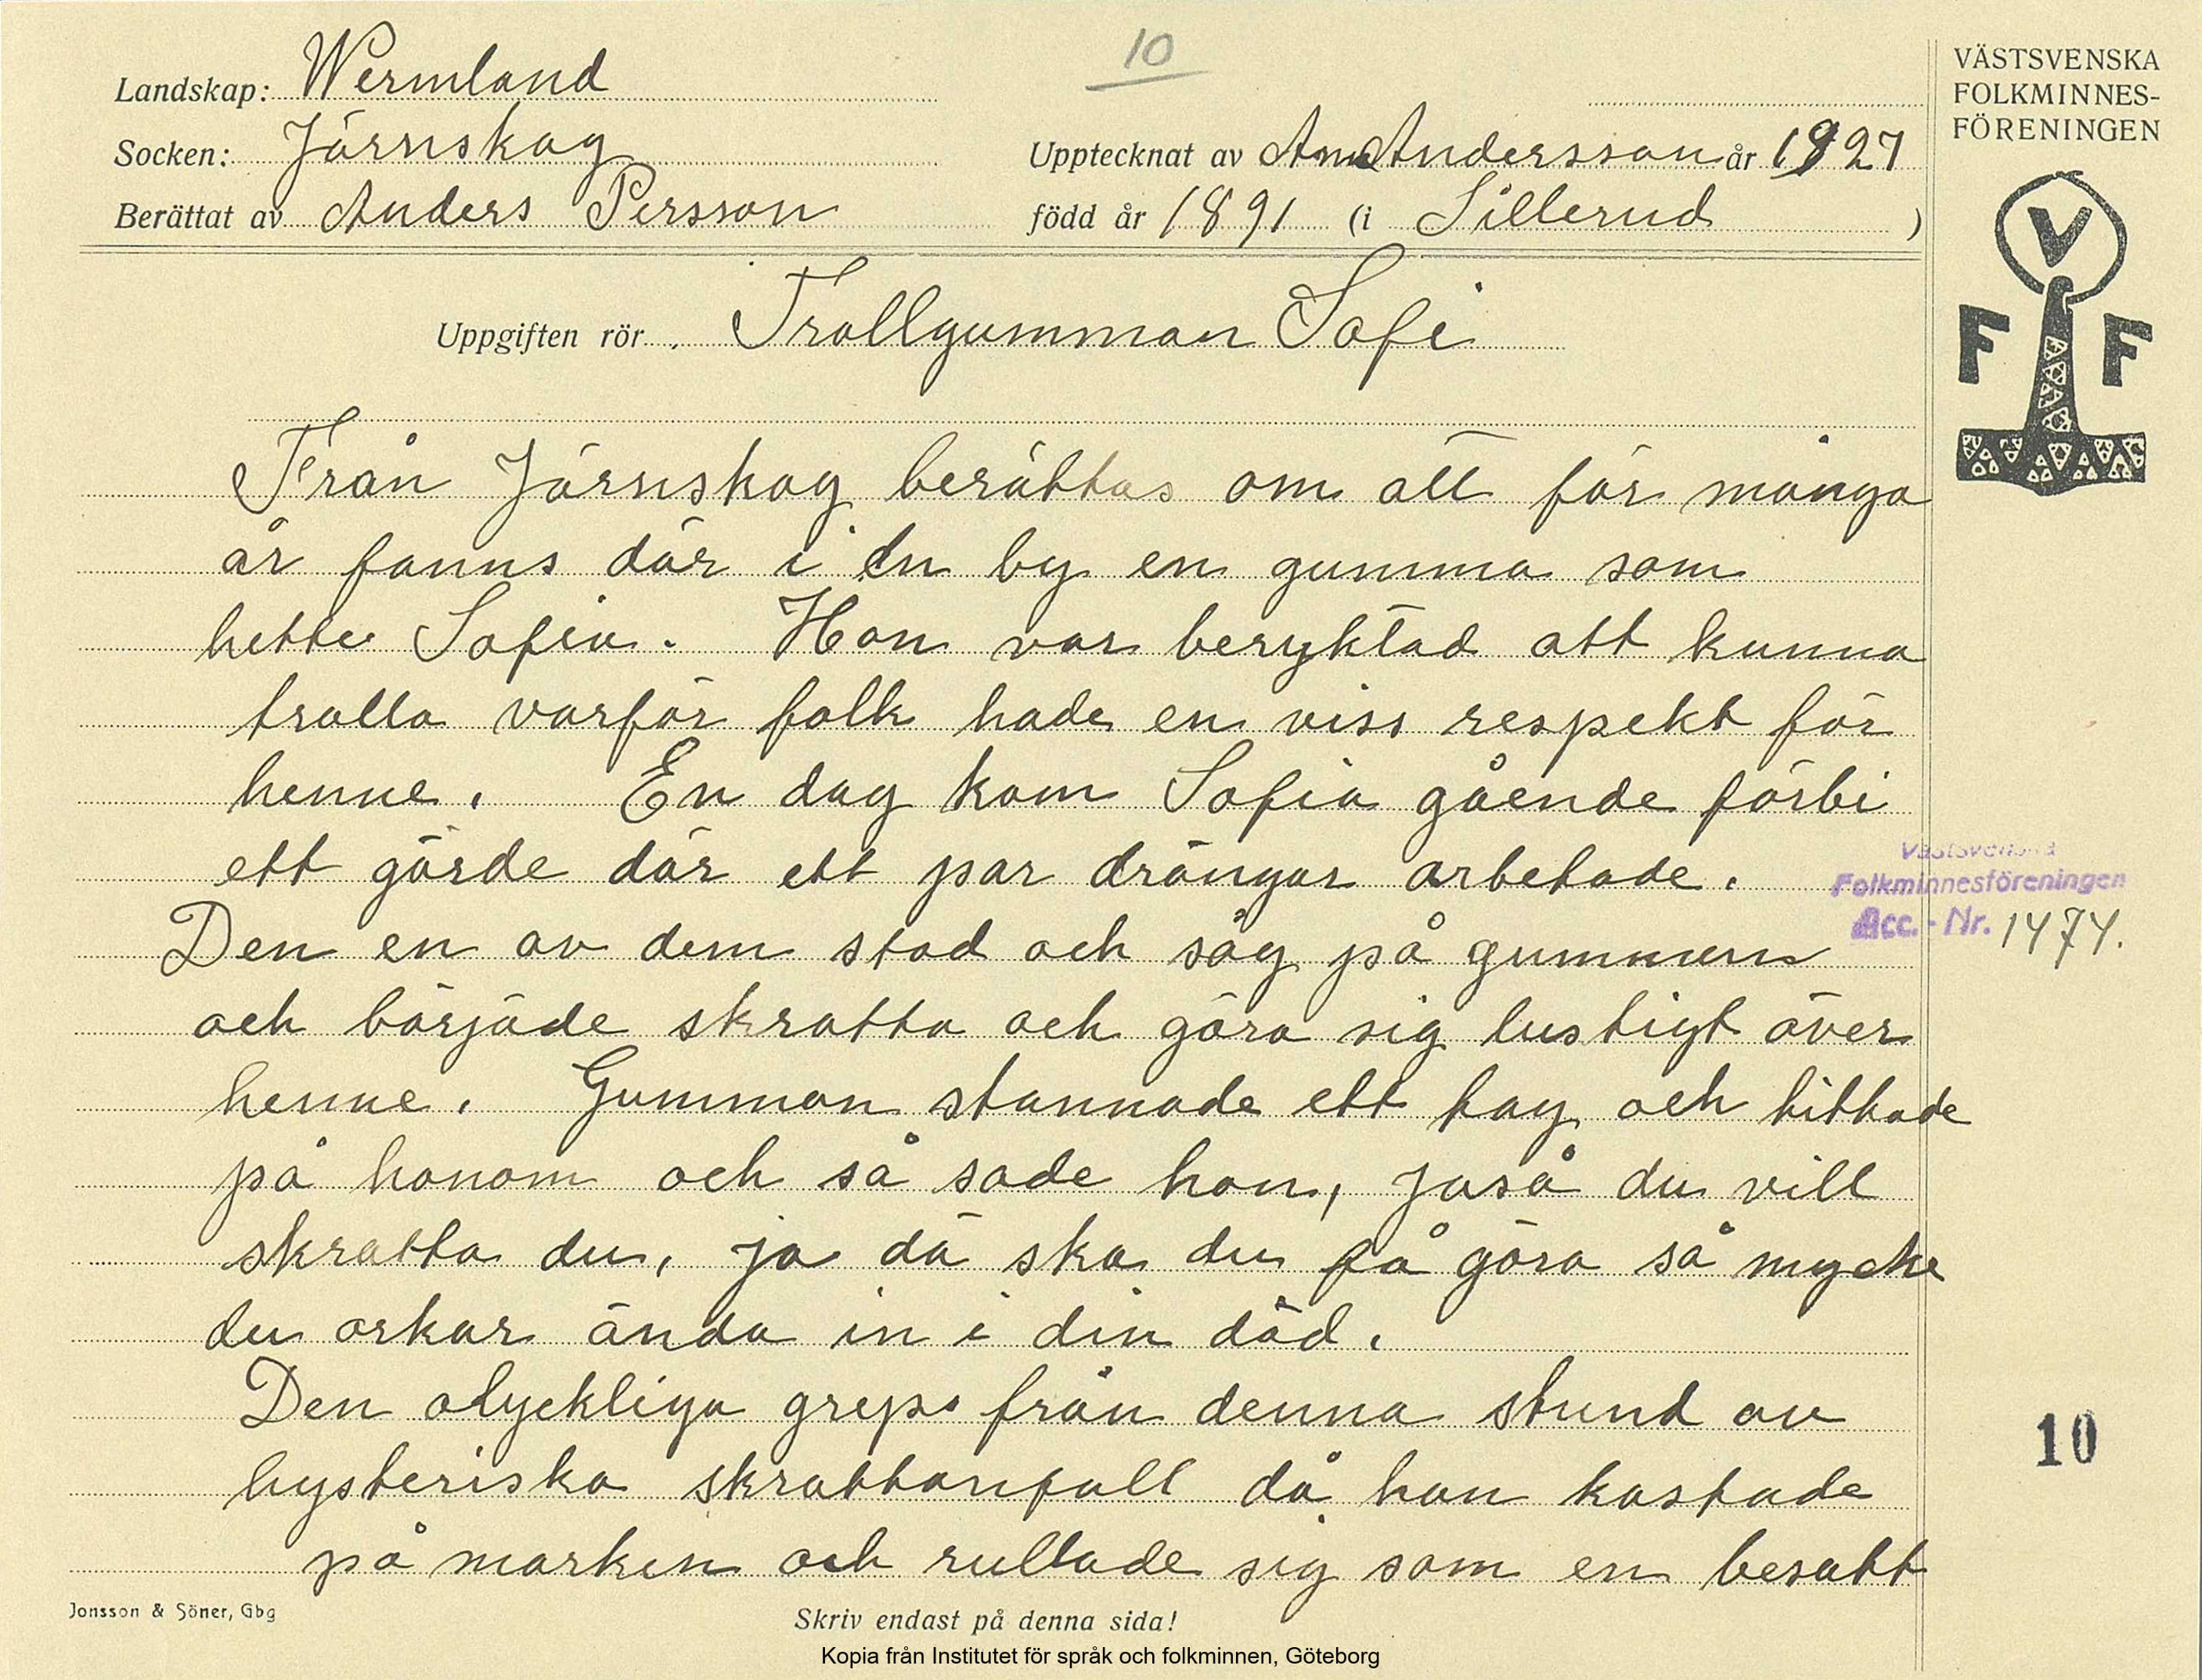 10
Landskap: Wermland
Socken: Järnskog
Berättat av Anders Persson
Upptecknat av Andersson år 1927
född år 1891 (i Sillerud )
VÄSTSVENSKA
FOLKMINNES-
FÖRENINGEN
V
F F
Uppgiften rör Trollgumman Sofi
Från Järnskog berättas om att för många
år fanns där i en by en gumma som
hette Sofia. Hon var beryktad att kunna
trolla varför folk hade en viss respekt för
henne. En dag kom Sofia gående förbi
ett gärde där ett par drängar arbetade.
Den en av dem stod och såg på gumman
och började skratta och göra sig lustigt över
henne. Gumman stannade ett tag och tittade
på honom och så sade hon, Jaså du vill
skratta du, ja då ska du få göra så mycke
du orkar ända in i din död.
Den olycklige greps från denna stund av
hysteriska skrattanfall då han kastade
på marken och rullade sig som en besatt
Västsvenska
Folkminnesföreningen
Acc.-Nr. 1474.
10
Jonsson & Söner, Gbg
Skriv endast på denna sida!
Kopia från Institutet för språk och folkminnen, Göteborg